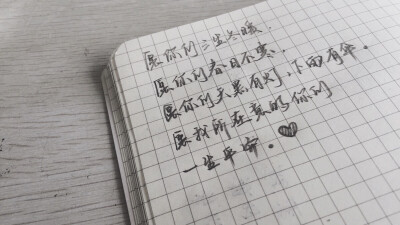 愿你们三生冬暖.
愿你们春日不寒.
愿你们天黑有灯,下雨有伞。
愿我所在意的你们
一生平安。